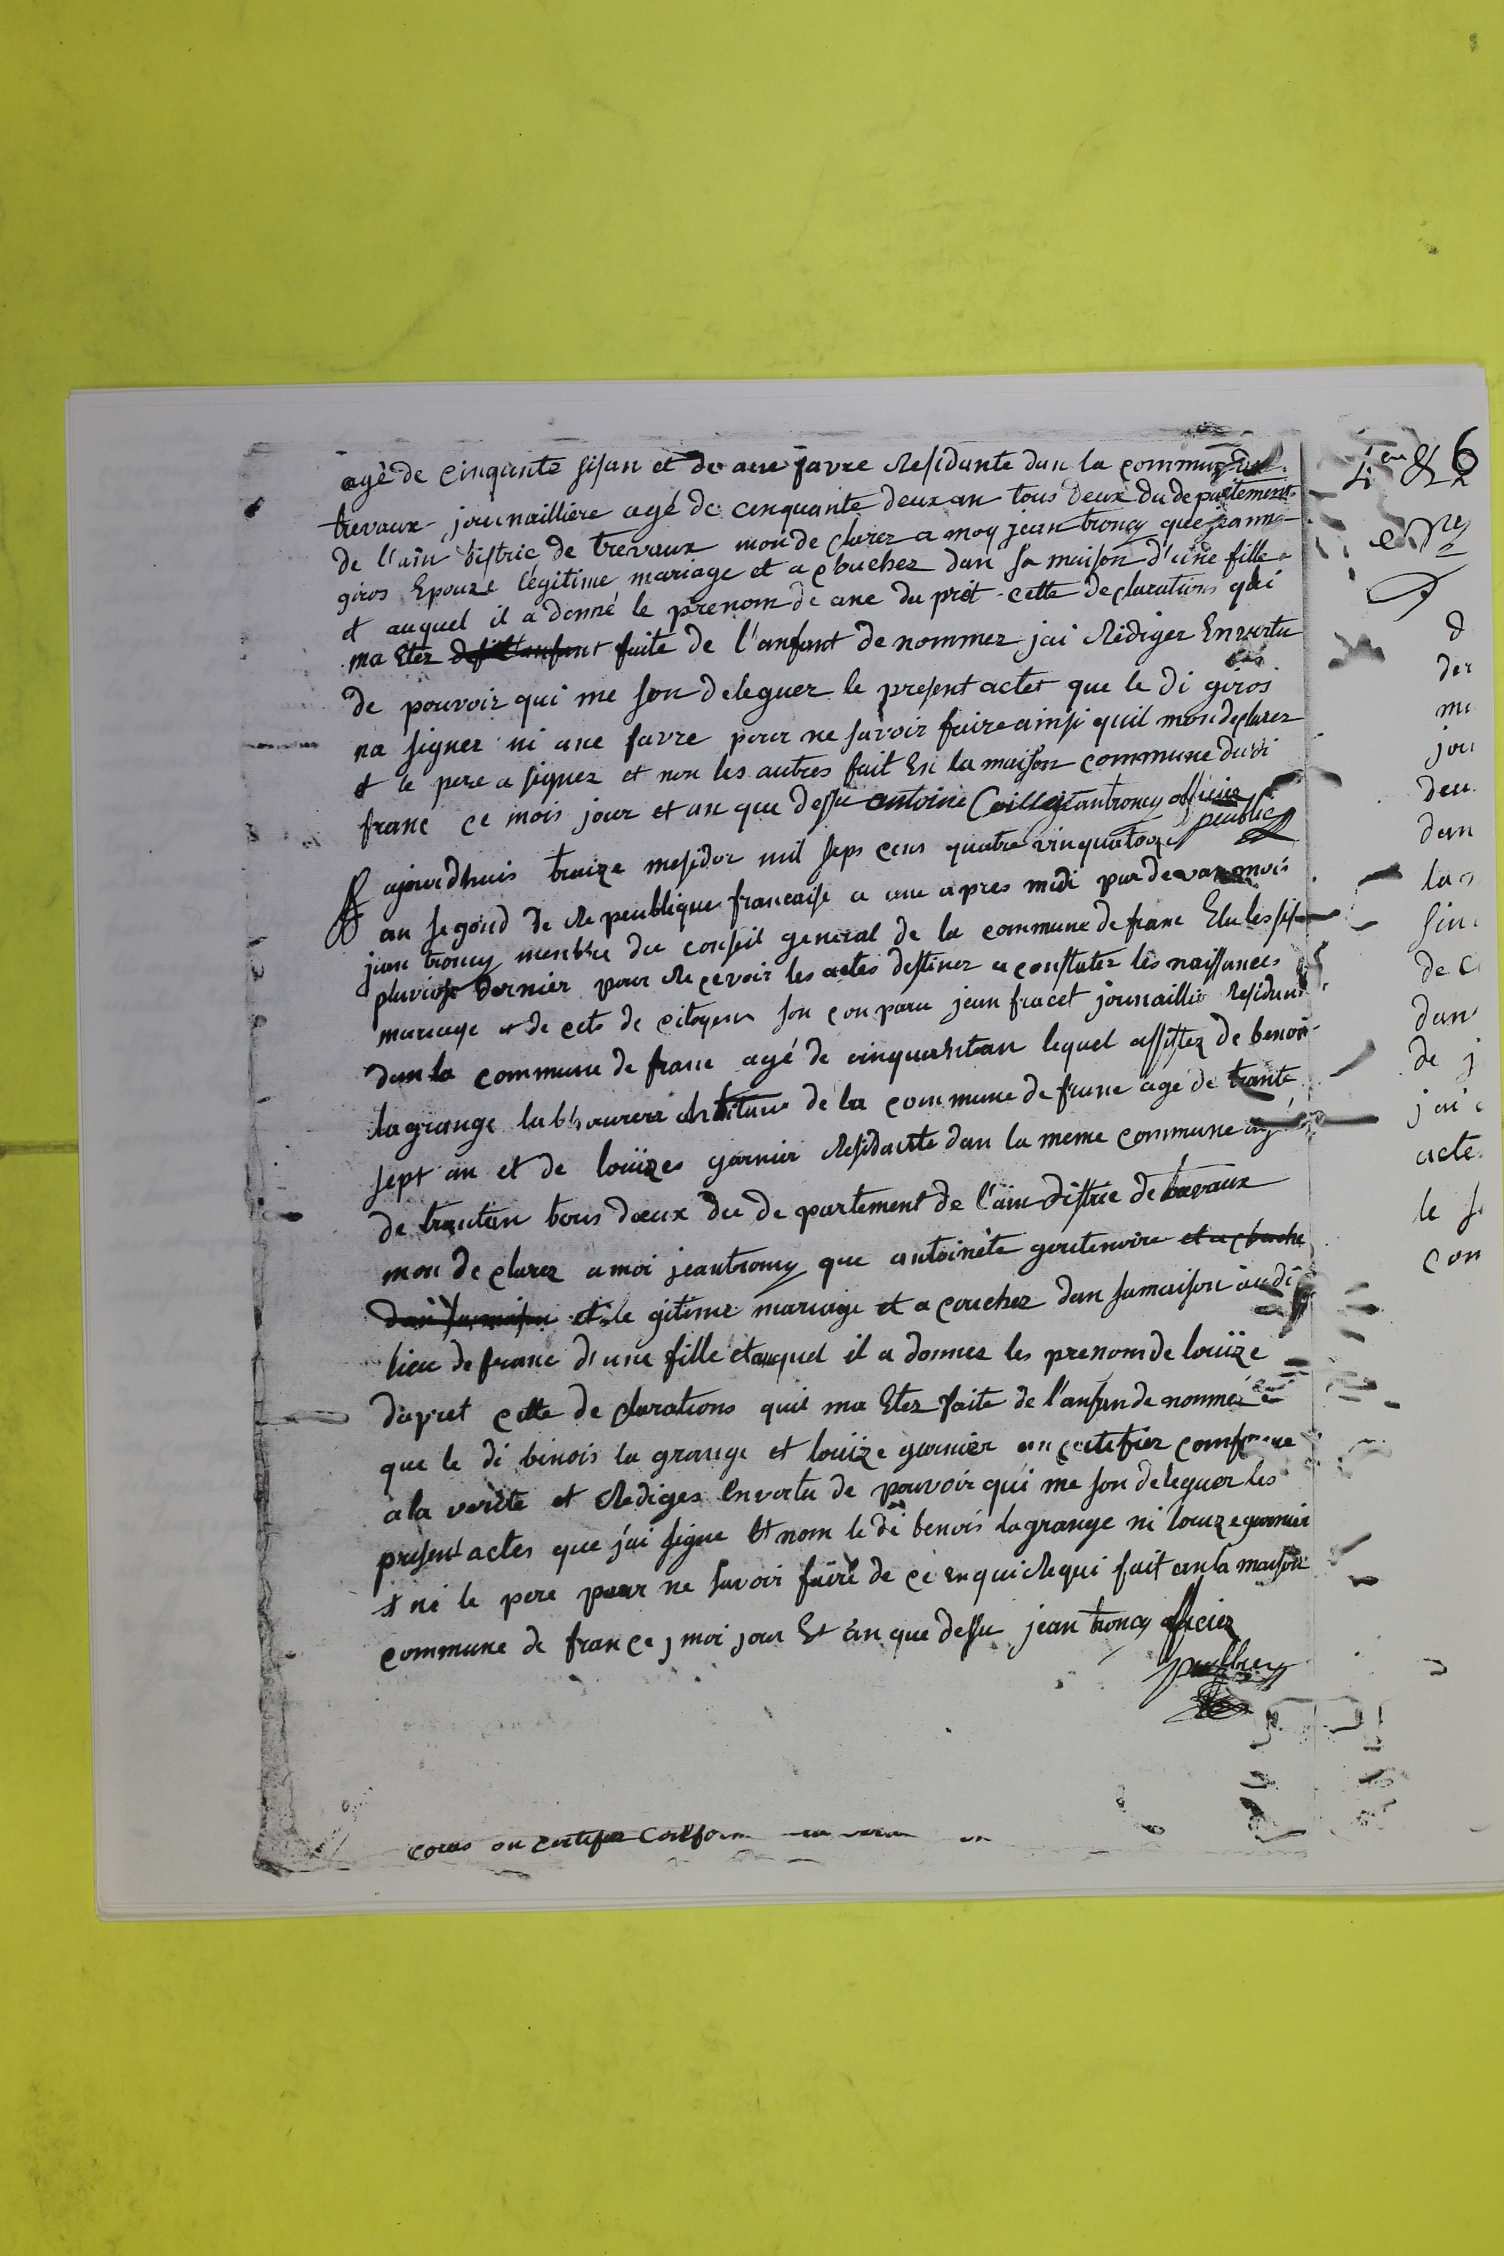 agé de cinquante sisan et de ane favre Residante dan la commune de
trevaux journailliere agé de cenquante deux an tous deux du departement
de l'ain distric de trevaux mon de clarez a moy jean troncy que janne
giros Epouze legitime mariage et a couchez dan sa maison d'une fille
et auquel il a donné le prenom de ane du prèt cette declarations qui
ma Etez faite de l'anfant de nommez jai Rédiger En vertu
de pouvoir qui me son deleguer le present actes que le di giros
na signer ni ane favre pour ne savoir faire ainsi quil mon declarez
et le pere a signez et non les autres fait En la maison commune dudi
franc ce mois jour et an que dessu antoine jean troncy officier
peublic
ajourdhuis traize mesidor mil seps cens quatre vin quatorze
an segond de Republique francaise a une apres midi par devan mois
jean troncy menbre du conseil general de la commune de franc Elu les sis
pluviose dernier pour Recevoir les actes destinez a constatez les naissances
mariage et de cets de citoyens son conparu jean fracet journaillie Residant
dan la commune de franc agé de cinquante an lequel assistez de benois
lagrange labourere de la commune de franc agé de trante
sept an et de louïzes garnier Residante dan la meme commune agé
de trantan tous deux du de partement de l'ain distric de trevaux
mon de clarez a moi jean troncy que antoinète et a couche
dan sa maison et le gitime mariage et a couchez dan sa maison audi
lieu de franc d'une fille et auquel il a donnez les prenom de louïze
daprèt cette de clarations quil ma Etez faite de l'anfan de nommé
que le di binois la grange et louïze garnier on certifiez comforme
a la verite et Rediges En vertu de pouvoir qui me son deleguer les
present actes que j'ai signe Et nom le di benois lagrange ni louize garnier
et ni le pere pour ne savoir faire de ce en qui Requi fait an la maison
commune de france, moi jour Et an que dessu jean troncy officiez
peublic
on certifiez comforme
6
d
der
me
jou
deu
dan
la
sin
de c
dan
de j
jai
acte
le s
com